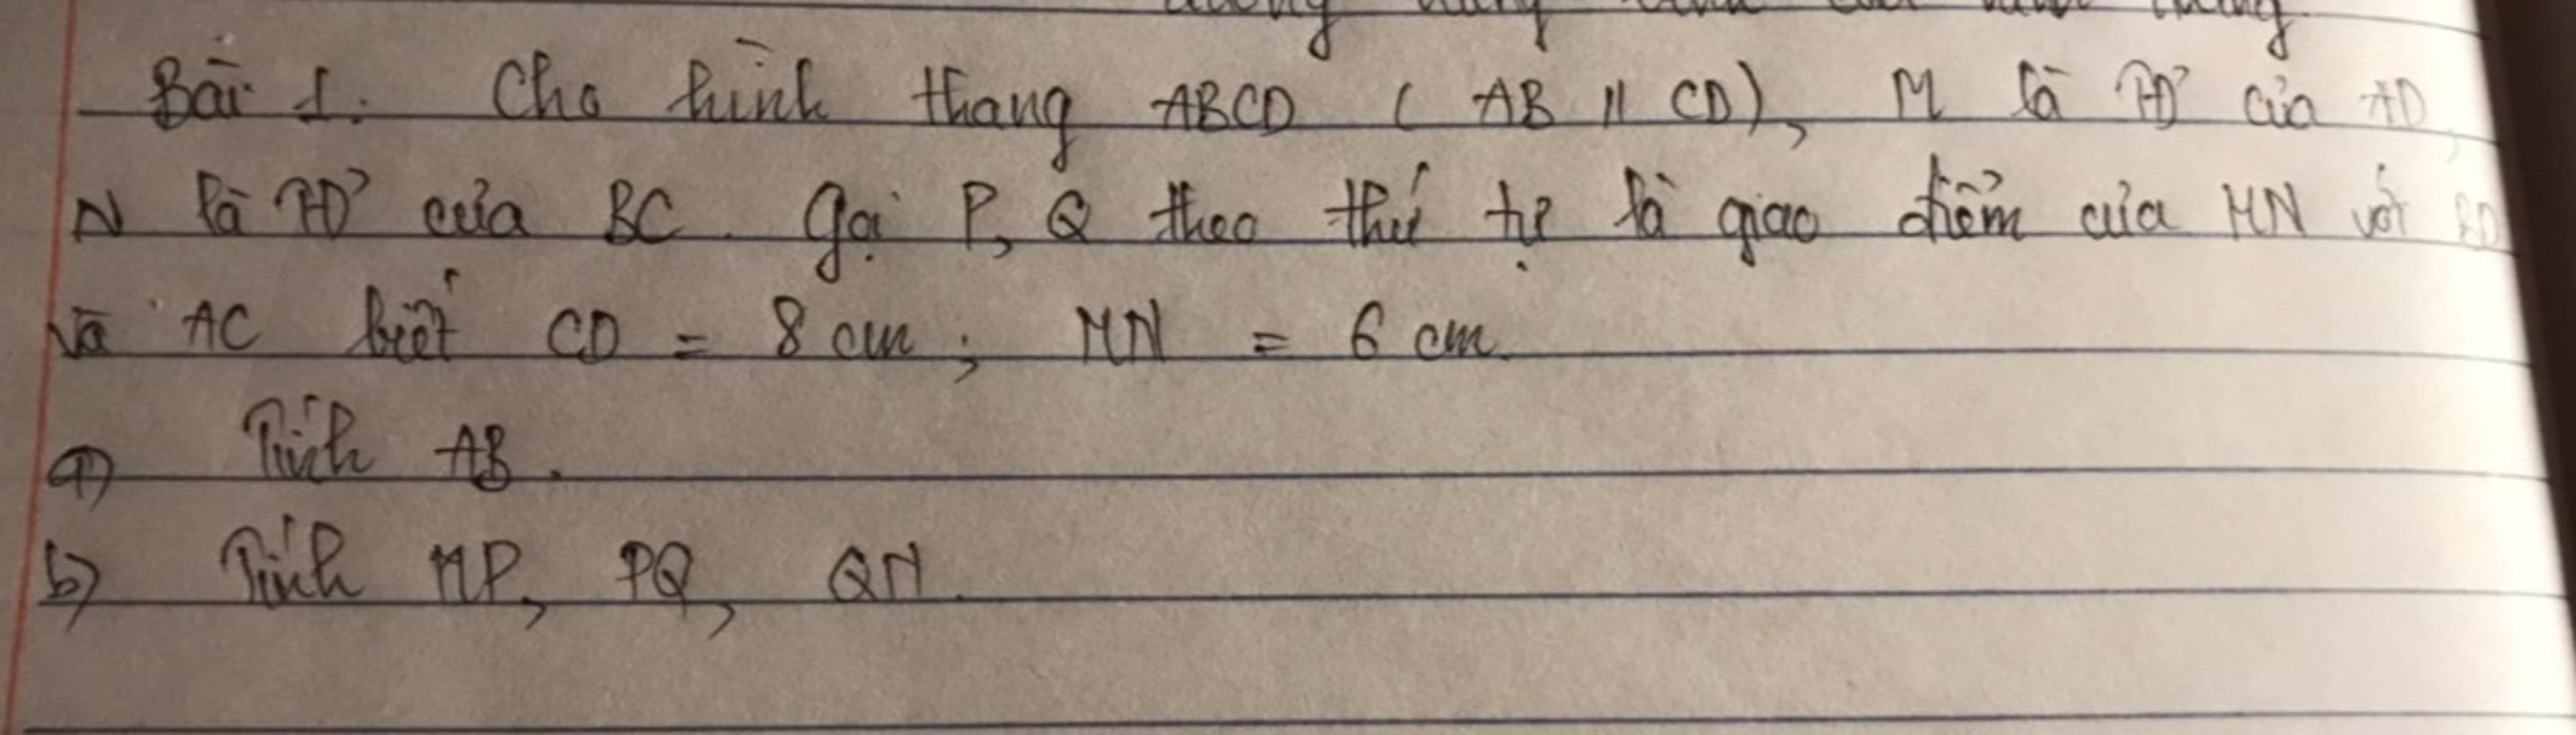 Bài 1. Cho hình thang ABCD ( AB // CD), M là TĐ' của AD,
N là TĐ' của BC. Gọi P, Q theo thứ tự là giao điểm của MN với BD
và AC biết CD = 8 cm ; MN = 6 cm.
a) Tính AB.
b) Tính MP, PQ, QN.